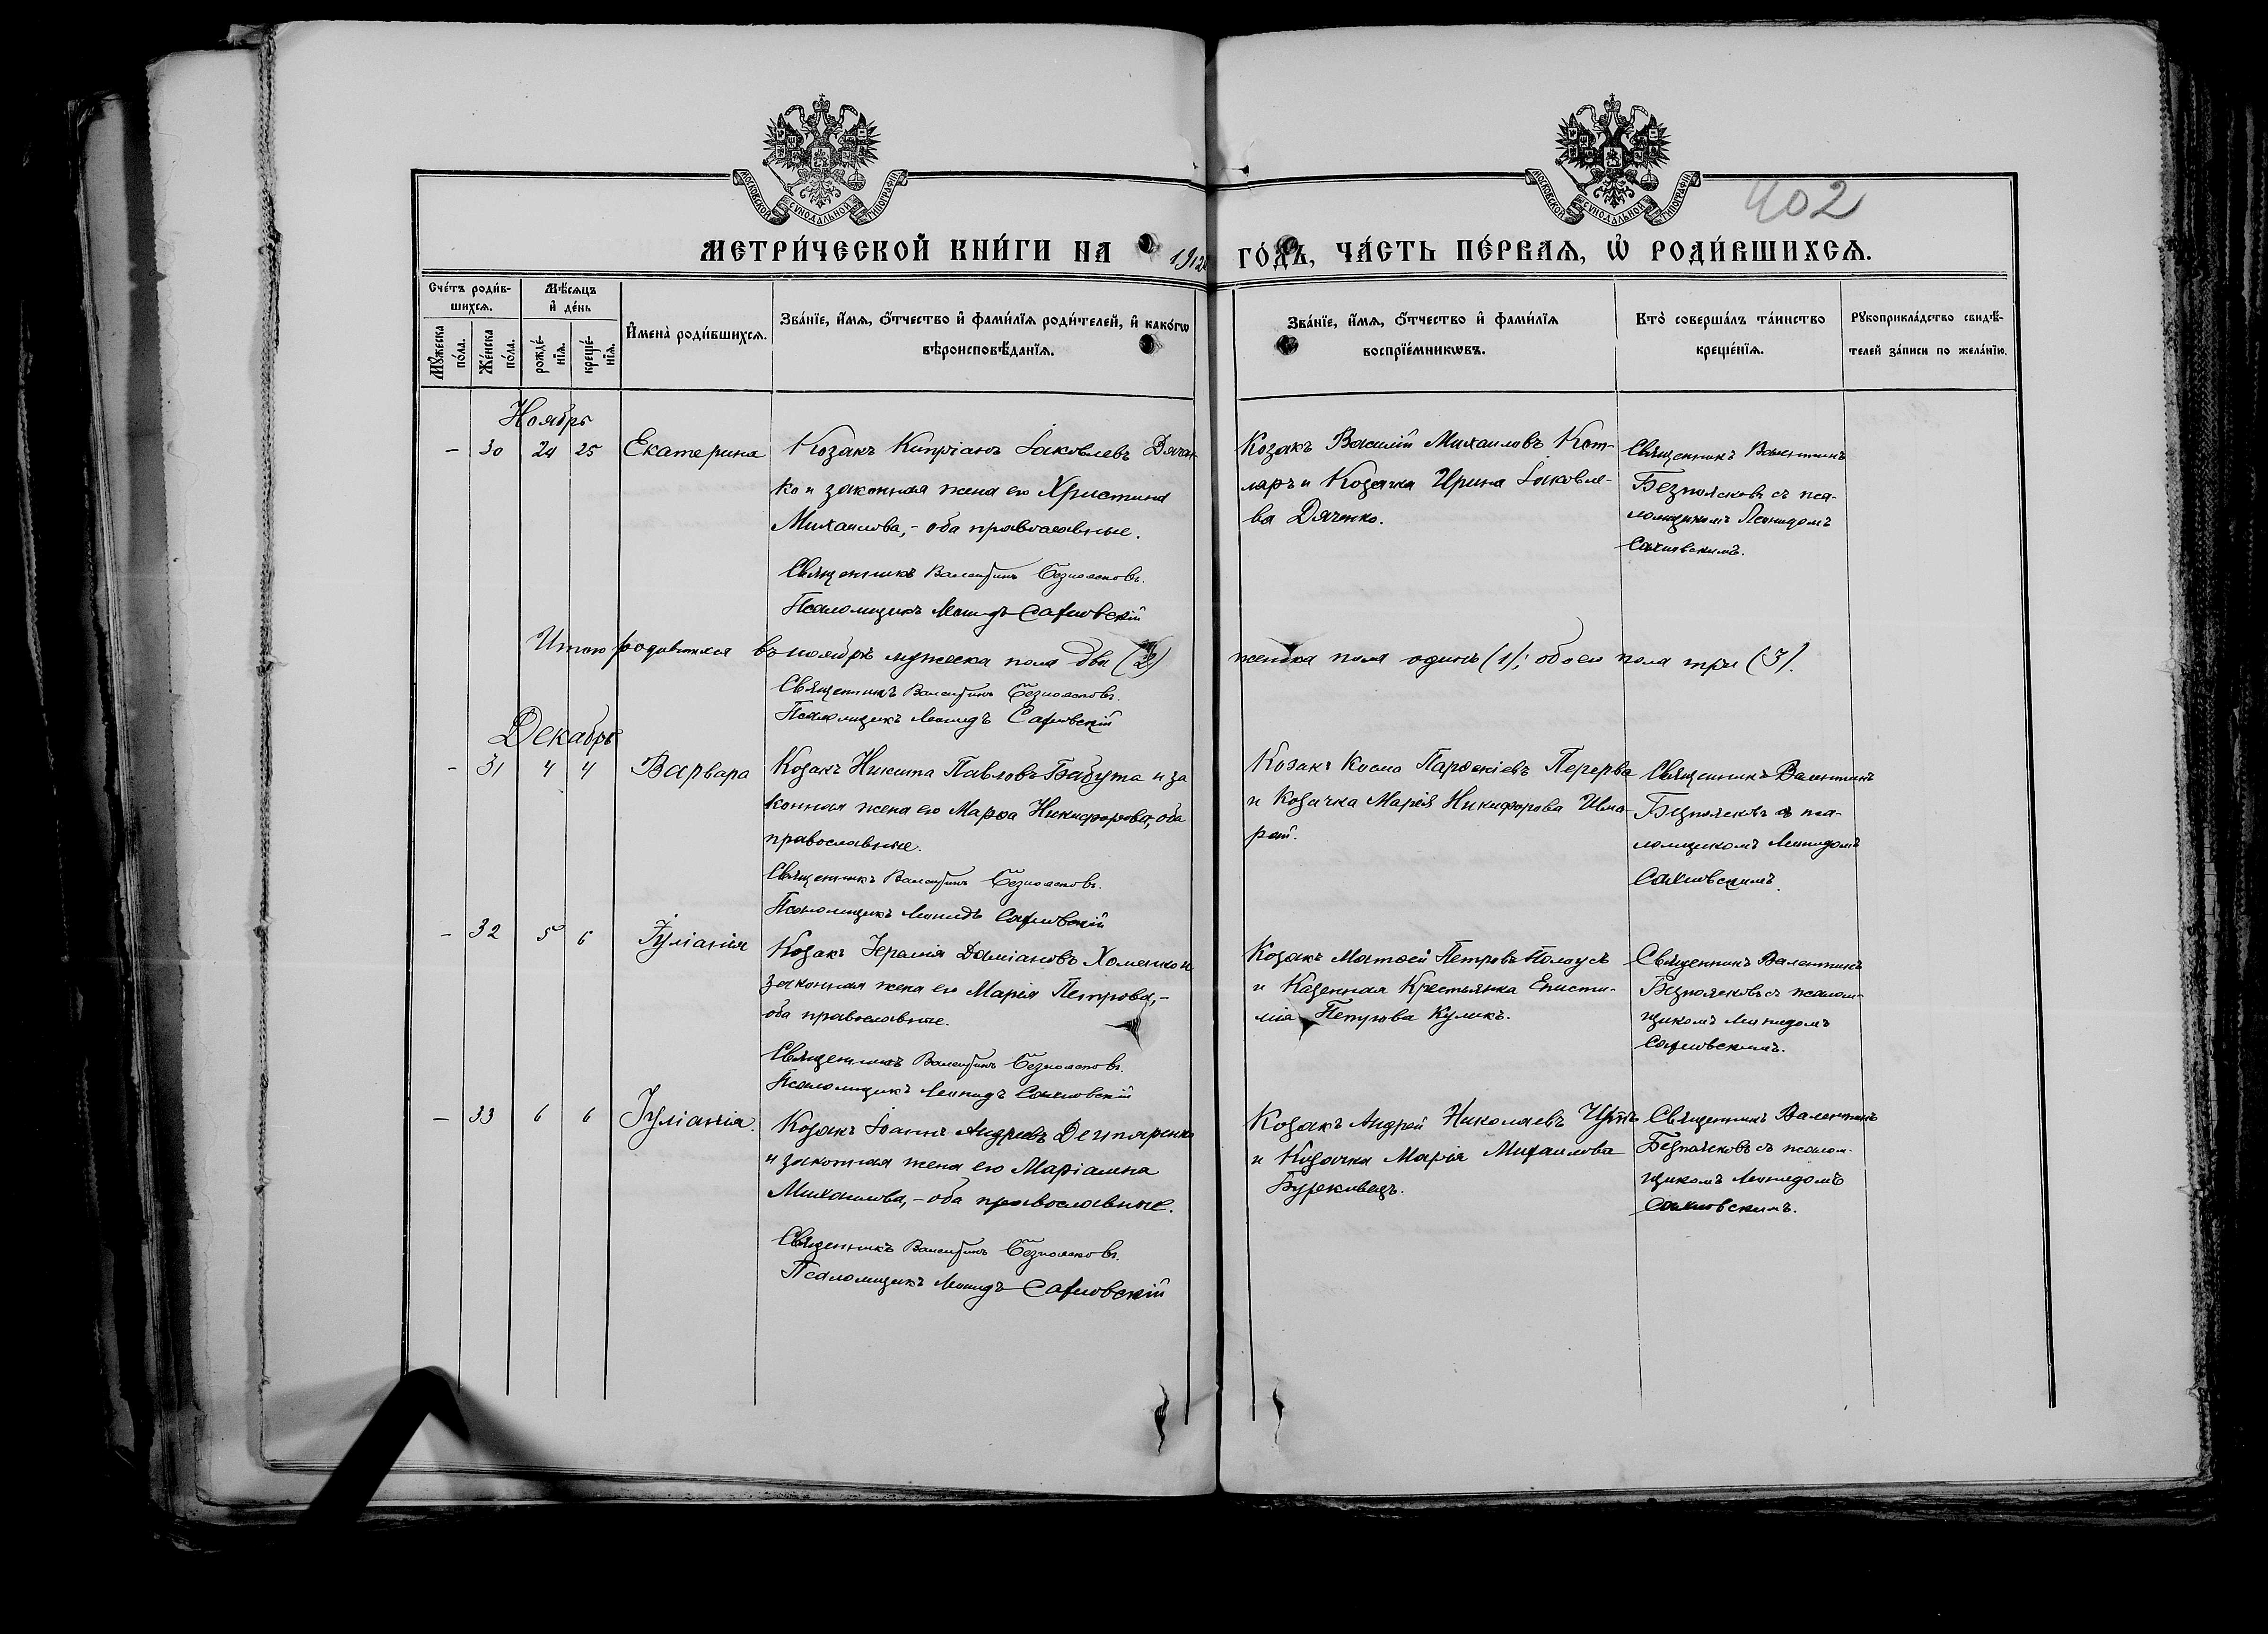 МОСКОВСКОЙ СУНОДАЛЬНОЙ ТИПОГРАФІИ
МОСКОВСКОЙ СУНОДАЛЬНОЙ ТИПОГРАФІИ
402
МЕТРИ́ЧЕСКОЙ КНИ́ГИ НА 1912 ГО́ДЪ, ЧА́СТЬ ПЕ́РВАѦ, Ѡ҆ РОДИ́ВШИХСѦ.
Сче́тъ роди́в-
шихсѧ.
Мѣ́сѧцъ
и҆ де́нь
Мꙋ́жеска
по́ла.
Же́нска
по́ла.
рожде́-
нїѧ.
креще́-
нїѧ.
И҆мена̀ роди́вшихсѧ.
Зва́нїе, и҆́мѧ, ѻ҆́тчество и҆ фами́лїѧ роди́телей, и҆ како́гѡ
вѣроисповѣ́данїѧ.
Зва́нїе, и҆́мѧ, ѻ҆́тчество и҆ фами́лїѧ
воспрїе́мникѡвъ.
Кто̀ соверша́лъ та́инство
креще́нїѧ.
Рꙋкоприкла́дство свидѣ́-
телей за́писи по жела́нїю.
Ноябрь
- 30 24 25 Екатерина
Козакъ Кипріанъ Іаковлевъ Дячен-
ко и законная жена его Христина
Михаилова, - оба православные.
Священникъ Валентинъ Безпоясковъ.
Псаломщикъ Леонидъ Сахновскій
Козакъ Василій Михаиловъ Кот-
ляръ и Козачка Ирина Іаковле-
ва Дяченко.
Священникъ Валентинъ
Безпоясковъ съ пса-
ломщикомъ Леонидомъ
Сахновскимъ.
Итого родившихся въ ноябрѣ мужеска пола два (2) женска пола одинъ (1); обоего пола три (3).
Священникъ Валентинъ Безпоясковъ.
Псаломщикъ Леонидъ Сахновскій
Декабрь
- 31 4 4 Варвара
Козакъ Никита Павловъ Бабута и за
конная жена его Марѳа Никифорова, оба
православные.
Священникъ Валентинъ Безпоясковъ.
Псаломщикъ Леонидъ Сахновскій
Козакъ Косма Парѳеніевъ Перерва
и Козачка Марія Никифорова
Священникъ Валентинъ
Безпоясковъ съ пса-
ломщикомъ Леонидомъ
Сахновскимъ.
- 32 5 6 Іуліанія
Козакъ Іеремія Даміановъ Хоменко и
законная жена его Марія Петрова, -
оба православные.
Священникъ Валентинъ Безпоясковъ.
Псаломщикъ Леонидъ Сахновскій
Козакъ Матѳей Петровъ
и Казенная Крестьянка Еписти-
мія Петрова Куликъ.
Священникъ Валентинъ
Безпоясковъ съ псалом-
щикомъ Леонидомъ
Сахновскимъ.
- 33 6 6 Іуліанія.
Козакъ Іоаннъ Андреевъ Дегтяренко
и законная жена его Маріамна
Михаилова, - оба православные.
Священникъ Валентинъ Безпоясковъ.
Псаломщикъ Леонидъ Сахновскій
Козакъ Андрей Николаевъ
и Козачка Марія Михаилова
Священникъ Валентинъ
Безпоясковъ съ псалом-
щикомъ Леонидомъ
Сахновскимъ.